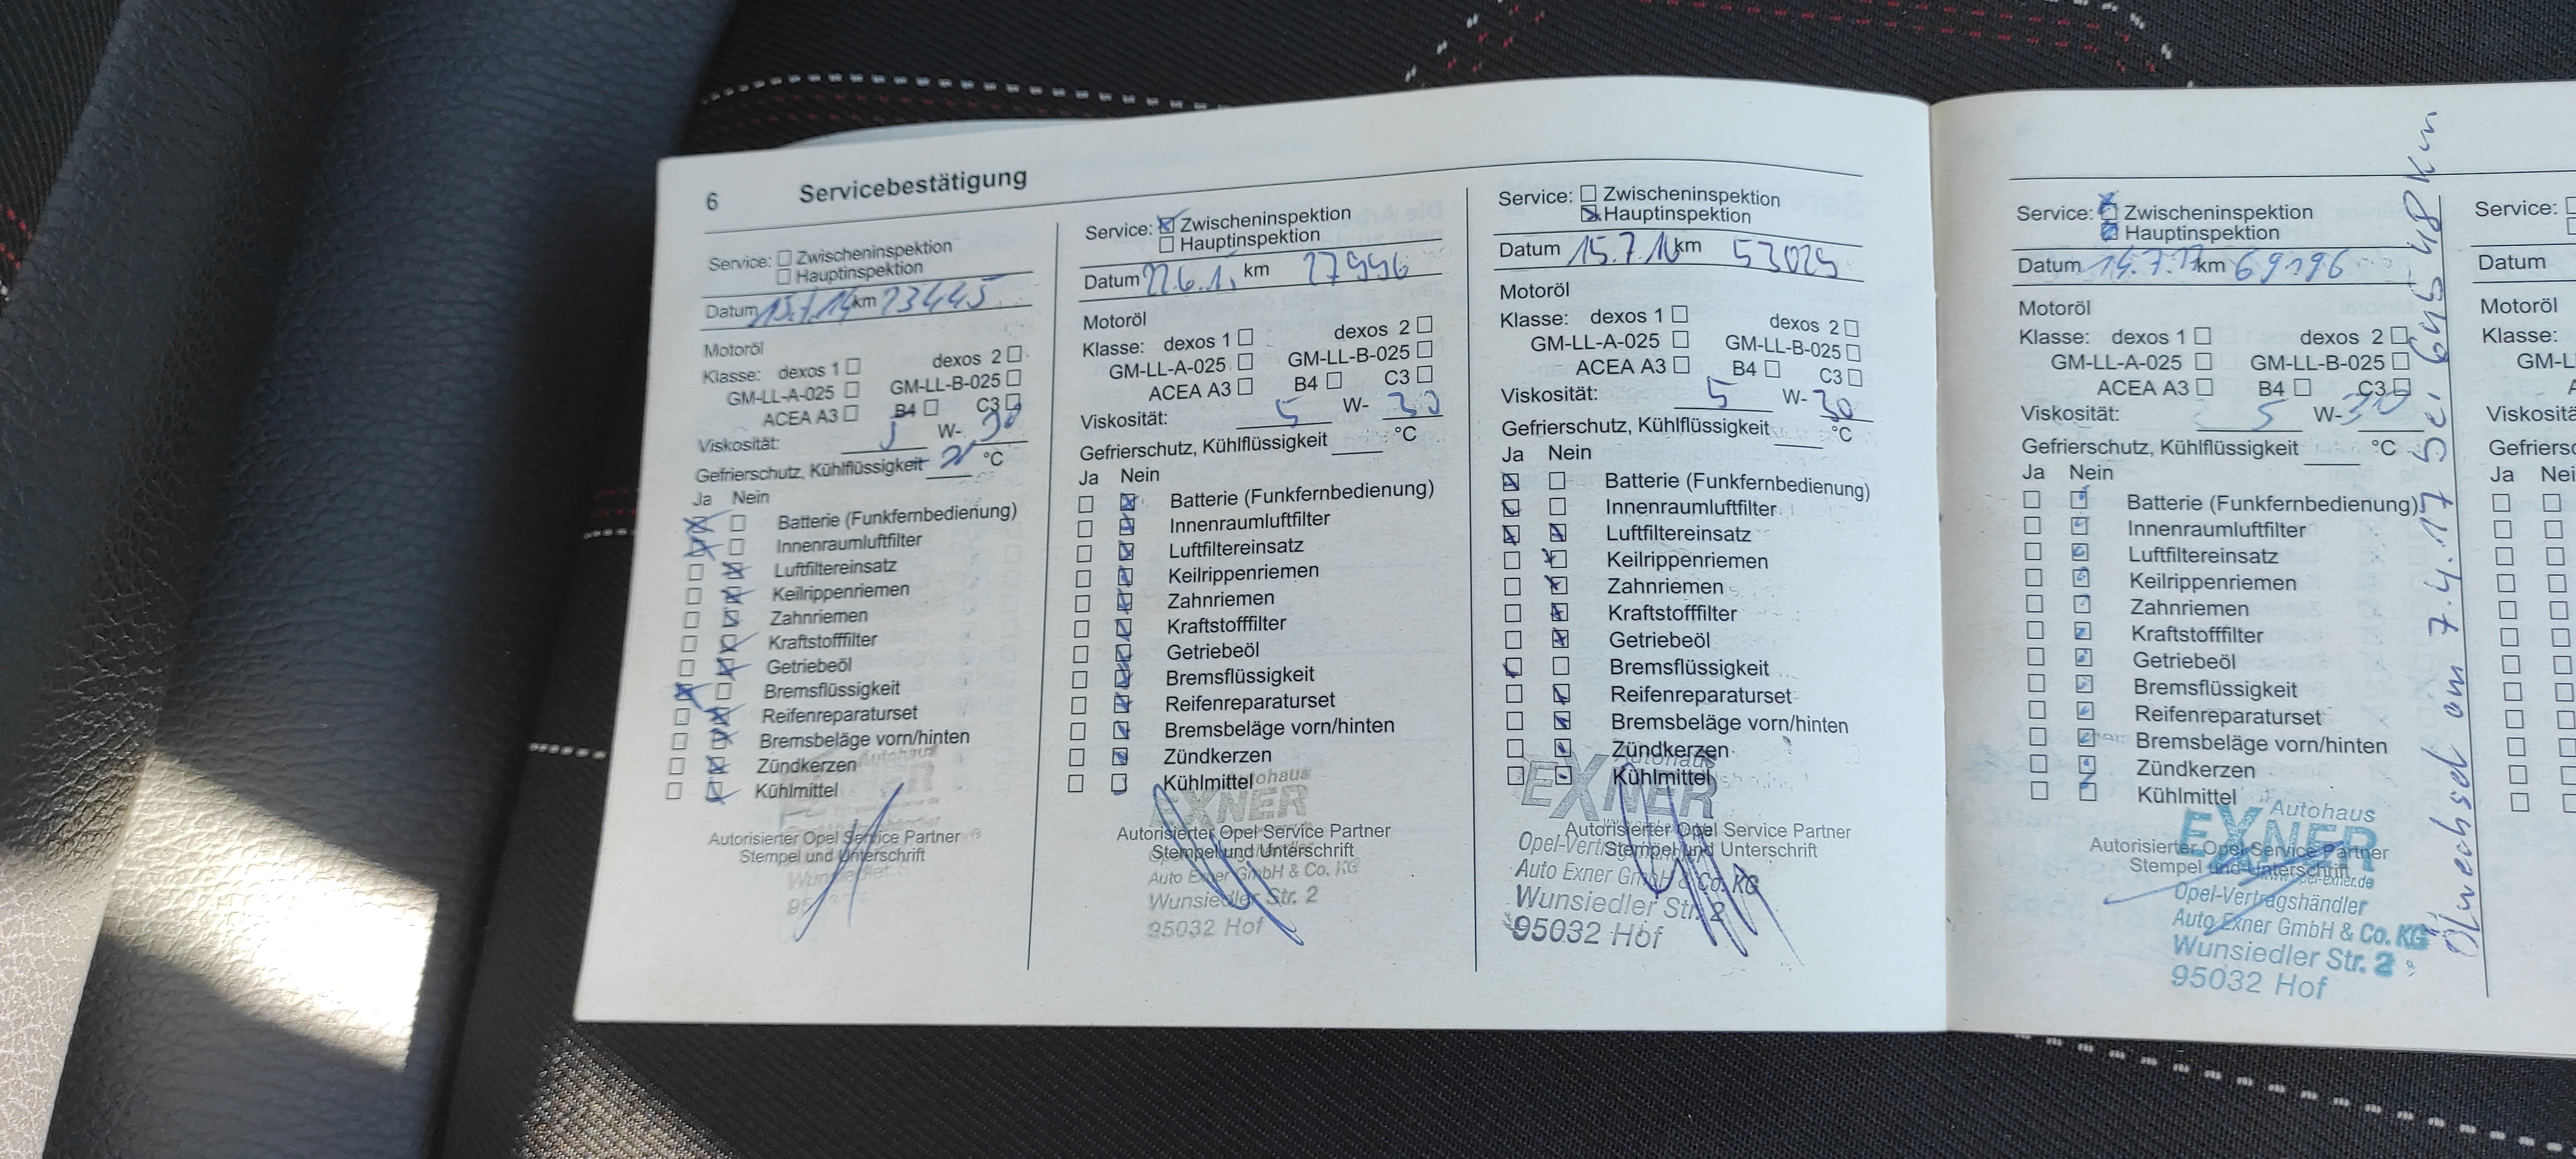 6 Servicebestätigung
Service: Zwischeninspektion
Hauptinspektion
Datum km 23445
Motoröl
Klasse: dexos 1 dexos 2
GM-LL-A-025 GM-LL-B-025
ACEA A3 B4 C3
Viskosität: 5 W- 30
Gefrierschutz, Kühlflüssigkeit °C
Ja Nein
Batterie (Funkfernbedienung)
Innenraumluftfilter
Luftfiltereinsatz
Keilrippenriemen
Zahnriemen
Kraftstofffilter
Getriebeöl
Bremsflüssigkeit
Reifenreparaturset
Bremsbeläge vorn/hinten
Zündkerzen
Kühlmittel
Autohaus
Autorisierter Opel Service Partner
Stempel und Unterschrift
Service: Zwischeninspektion
Hauptinspektion
Datum km
Motoröl
Klasse: dexos 1 dexos 2
GM-LL-A-025 GM-LL-B-025
ACEA A3 B4 C3
Viskosität: 5 W- 30
Gefrierschutz, Kühlflüssigkeit °C
Ja Nein
Batterie (Funkfernbedienung)
Innenraumluftfilter
Luftfiltereinsatz
Keilrippenriemen
Zahnriemen
Kraftstofffilter
Getriebeöl
Bremsflüssigkeit
Reifenreparaturset
Bremsbeläge vorn/hinten
Zündkerzen
Kühlmittel
EXNER
Autorisierter Opel Service Partner
Stempel und Unterschrift
Auto Exner GmbH & Co. KG
Wunsiedler Str. 2
95032 Hof
Service: Zwischeninspektion
Hauptinspektion
Datum 15.7.16 km 53029
Motoröl
Klasse: dexos 1 dexos 2
GM-LL-A-025 GM-LL-B-025
ACEA A3 B4 C3
Viskosität: 5 W- 30
Gefrierschutz, Kühlflüssigkeit °C
Ja Nein
Batterie (Funkfernbedienung)
Innenraumluftfilter
Luftfiltereinsatz
Keilrippenriemen
Zahnriemen
Kraftstofffilter
Getriebeöl
Bremsflüssigkeit
Reifenreparaturset
Bremsbeläge vorn/hinten
Zündkerzen
Kühlmittel
Autohaus
EXNER
Autorisierter Opel Service Partner
Stempel und Unterschrift
Auto Exner GmbH & Co. KG
Wunsiedler Str. 2
95032 Hof
Service: Zwischeninspektion
Hauptinspektion
Datum 14.7.17 km 69196
Motoröl
Klasse: dexos 1 dexos 2
GM-LL-A-025 GM-LL-B-025
ACEA A3 B4 C3
Viskosität: 5 W- 30
Gefrierschutz, Kühlflüssigkeit °C
Ja Nein
Batterie (Funkfernbedienung)
Innenraumluftfilter
Luftfiltereinsatz
Keilrippenriemen
Zahnriemen
Kraftstofffilter
Getriebeöl
Bremsflüssigkeit
Reifenreparaturset
Bremsbeläge vorn/hinten
Zündkerzen
Kühlmittel
Autohaus
EXNER
Autorisierter Opel Service Partner
Stempel und Unterschrift
Opel-Vertragshändler
Auto Exner GmbH & Co. KG
Wunsiedler Str. 2
95032 Hof
Ölwechsel am 7.4.17 bei 64548 km
Service:
Datum
Motoröl
Klasse:
Ja